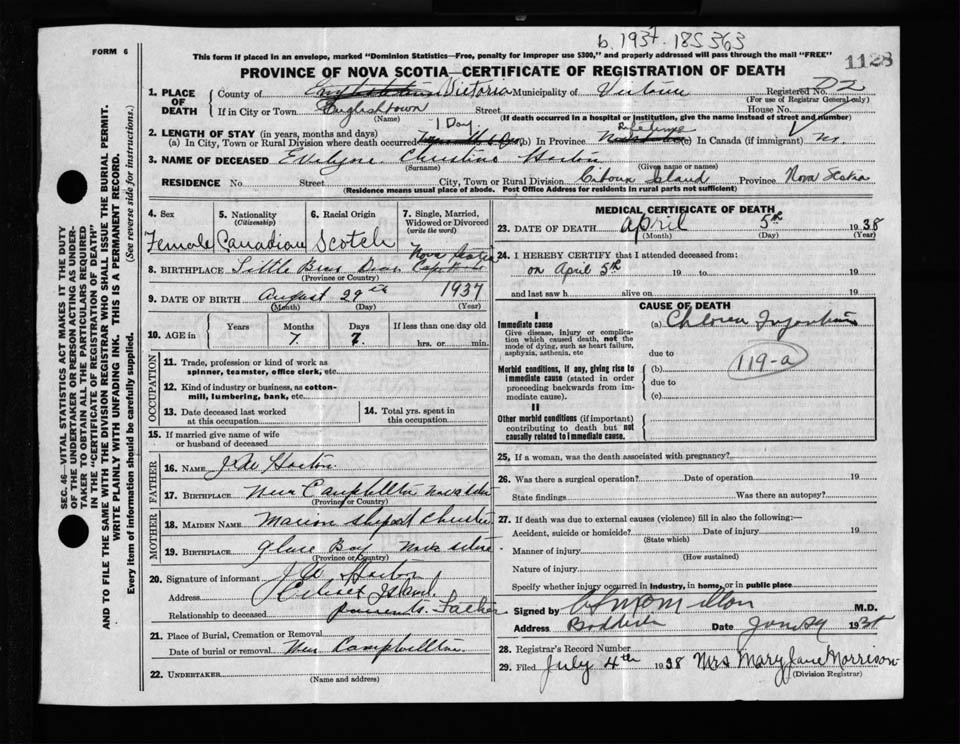 b. 1937. 185363
FORM 6
This form if placed in an envelope, marked "Dominion Statistics—Free, penalty for improper use $300," and properly addressed will pass through the mail "FREE"
1128
PROVINCE OF NOVA SCOTIA—CERTIFICATE OF REGISTRATION OF DEATH
1. PLACE OF DEATH County of Victoria Municipality of Victoria Registered No.
(For use of Registrar General only)
If in City or Town Englishtown Street House No.
(Name) (If death occurred in a hospital or institution, give the name instead of street and number)
1 Day
2. LENGTH OF STAY (in years, months and days)
(a) In City, Town or Rural Division where death occurred (b) In Province Lifetime (c) In Canada (if immigrant)
3. NAME OF DECEASED Christine Horton
(Surname) (Given name or names)
RESIDENCE No. Street City, Town or Rural Division Ciboux Island Province Nova Scotia
(Residence means usual place of abode. Post Office Address for residents in rural parts not sufficient)
4. Sex 5. Nationality (Citizenship) 6. Racial Origin 7. Single, Married, Widowed or Divorced (write the word)
Female Canadian Scotch
Nova Scotia
8. BIRTHPLACE Little Bras Dor Cape Breton
(Province or Country)
9. DATE OF BIRTH August 29th 1937
(Month) (Day) (Year)
10. AGE in Years Months Days If less than one day old
7 7 hrs. or min.
OCCUPATION
11. Trade, profession or kind of work as spinner, teamster, office clerk, etc.
12. Kind of industry or business, as cotton-mill, lumbering, bank, etc.
13. Date deceased last worked at this occupation 14. Total yrs. spent in this occupation
15. If married give name of wife or husband of deceased
FATHER
16. NAME J. W. Horton
17. BIRTHPLACE New Campbellton Nova Scotia
(Province or Country)
MOTHER
18. MAIDEN NAME Marion Christie
19. BIRTHPLACE Glace Bay Nova Scotia
(Province or Country)
20. Signature of informant J W Horton
Address Island
Relationship to deceased parents Father
21. Place of Burial, Cremation or Removal
Date of burial or removal New Campbellton
22. UNDERTAKER
(Name and address)
MEDICAL CERTIFICATE OF DEATH
23. DATE OF DEATH April 5th 1938
(Month) (Day) (Year)
24. I HEREBY CERTIFY that I attended deceased from:
on April 5th 19 to 19
and last saw h alive on 19
CAUSE OF DEATH
I
Immediate cause
Give disease, injury or complication which caused death, not the mode of dying, such as heart failure, asphyxia, asthenia, etc
(a) Cholera Infantum
due to
Morbid conditions, if any, giving rise to immediate cause (stated in order proceeding backwards from immediate cause).
(b)
119-a
due to
(c)
II
Other morbid conditions (if important) contributing to death but not causally related to immediate cause.
25. If a woman, was the death associated with pregnancy?
26. Was there a surgical operation? Date of operation 19
State findings Was there an autopsy?
27. If death was due to external causes (violence) fill in also the following:—
Accident, suicide or homicide? Date of injury 19
(State which)
Manner of injury
(How sustained)
Nature of injury
Specify whether injury occurred in industry, in home, or in public place
Signed by M.D.
Address Baddeck Date June 29 1938
28. Registrar's Record Number
29. Filed July 4th 1938 Mrs Mary Jane Morrison
(Division Registrar)
SEC. 46—VITAL STATISTICS ACT MAKES IT THE DUTY
OF THE UNDERTAKER OR PERSON ACTING AS UNDER-
TAKER TO OBTAIN ALL THE PARTICULARS REQUIRED
IN THE "CERTIFICATE OF REGISTRATION OF DEATH"
AND TO FILE THE SAME WITH THE DIVISION REGISTRAR WHO SHALL ISSUE THE BURIAL PERMIT.
WRITE PLAINLY WITH UNFADING INK. THIS IS A PERMANENT RECORD.
Every item of information should be carefully supplied. (See reverse side for instructions.)